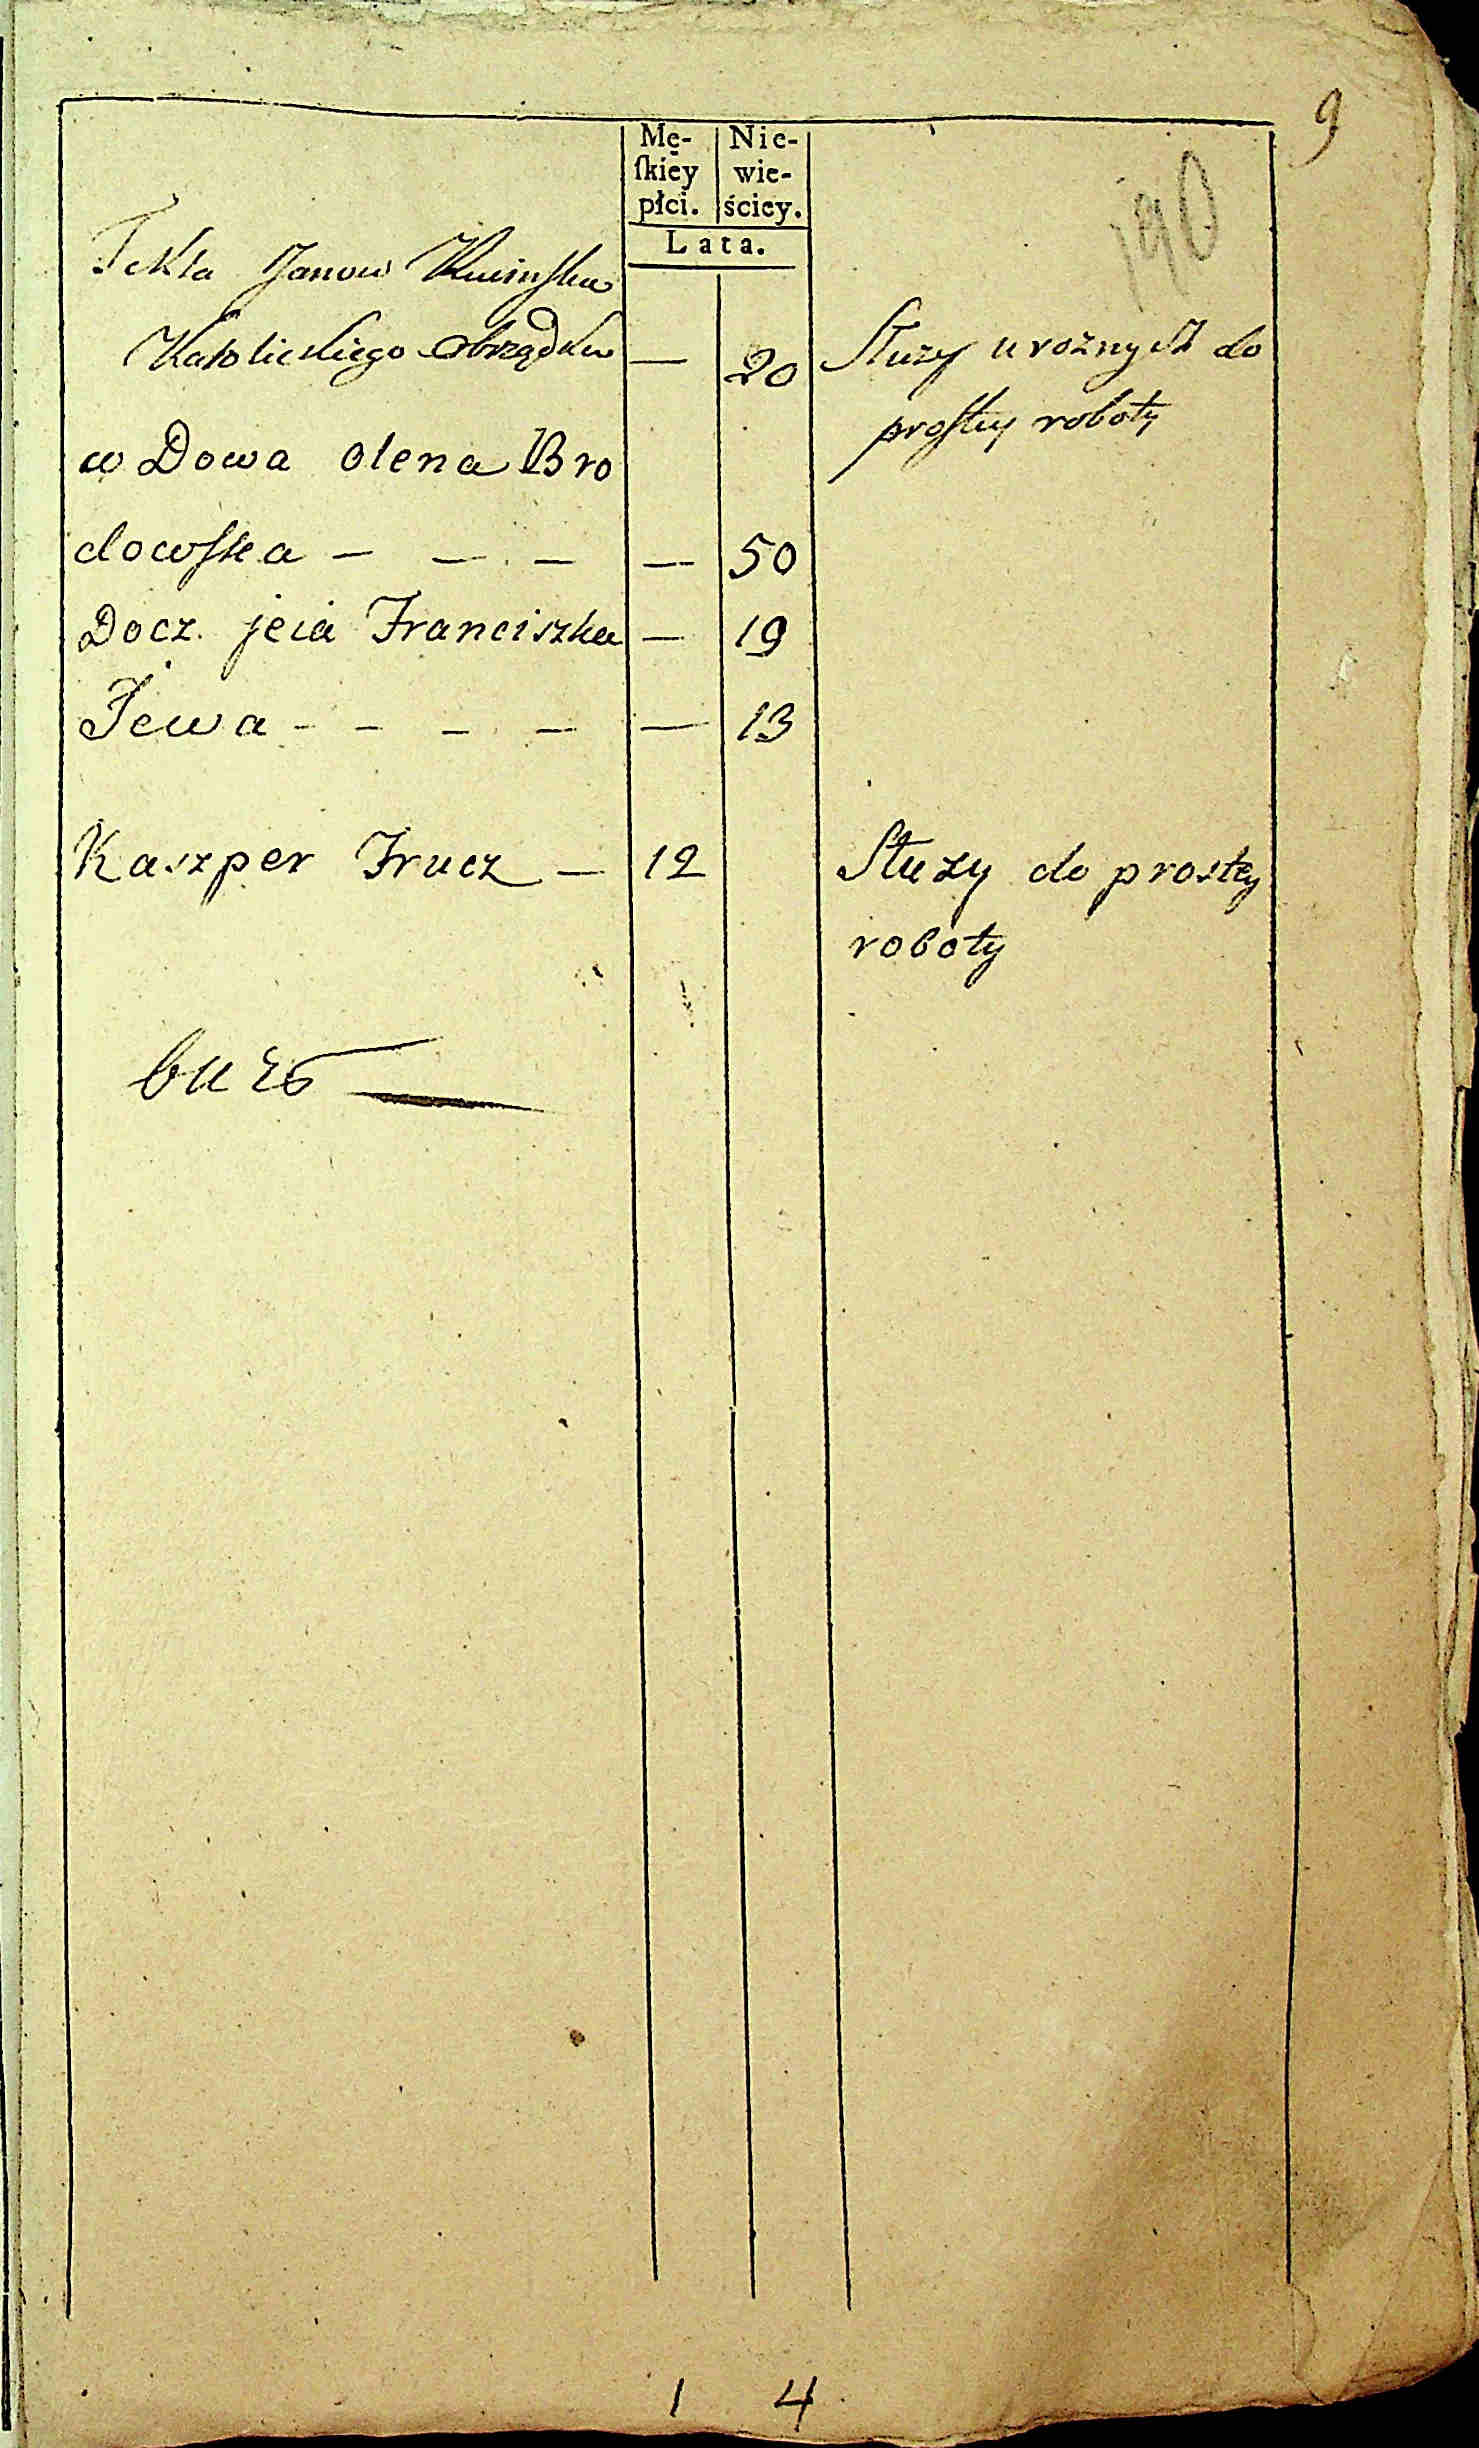 9
190
Mę- Nie-
ſkiey wie-
płci. ściey.
Lata.
Tekla Janow
Katolickiego obrządku — 20 Służy u rożnych do
prostey roboty
wDowa olena Bro
dowska - - - — 50
Docz. jeia Franciszka — 19
Jewa - - - - — 13
Kaszper Frucz — 12 Służy do prostey
roboty
1 4